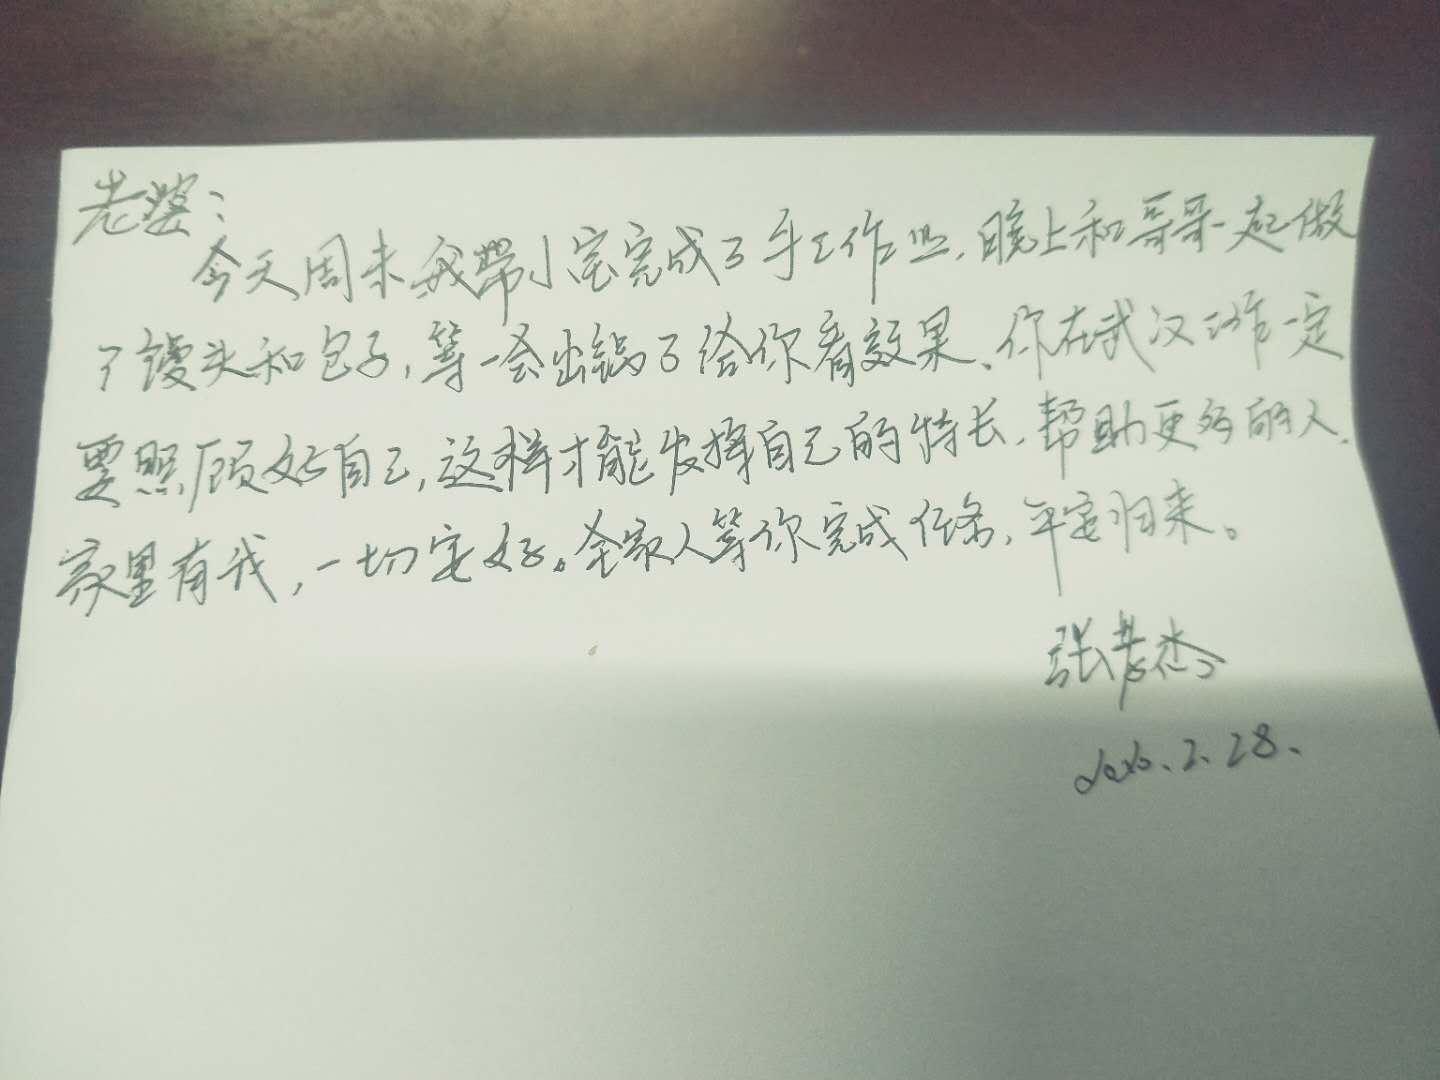 老婆：
今天周末我带小宝完成了手工作业，晚上和哥哥一起做
了馒头和包子，等一会出锅了给你看效果、你在武汉工作一定
要照顾好自己，这样才能发挥自己的特长，帮助更多的人，
家里有我，一切安好。全家人等你完成任务，平安归来。
张孝杰
2020.2.28、